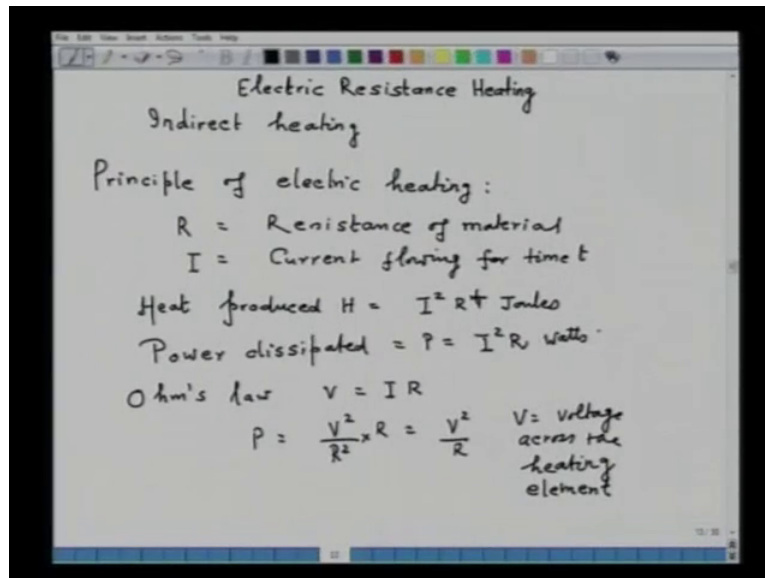 File Edit View Insert Actions Tools Help
Electric Resistance Heating
Indirect heating
Principle of electric heating:
R = Resistance of material
I = Current flowing for time t
Heat produced H = I² R t Joules
Power dissipated = P = I² R watts.
Ohm's law V = I R
P = V²/R² × R = V²/R V = Voltage
across the
heating
element